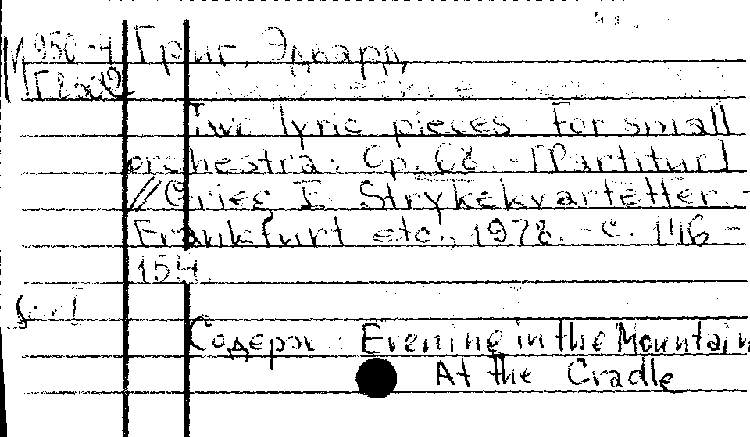 М 950-4 Григ, Эдвард
Two lyric pieces for small
orchestra: Op. 68. - [Partitur]
// Grieg E. Strykekvartetter. -
Frankfurt etc., 1978. - с. 146-
154.
Содерж.: Evening in the Mountain
At the Cradle